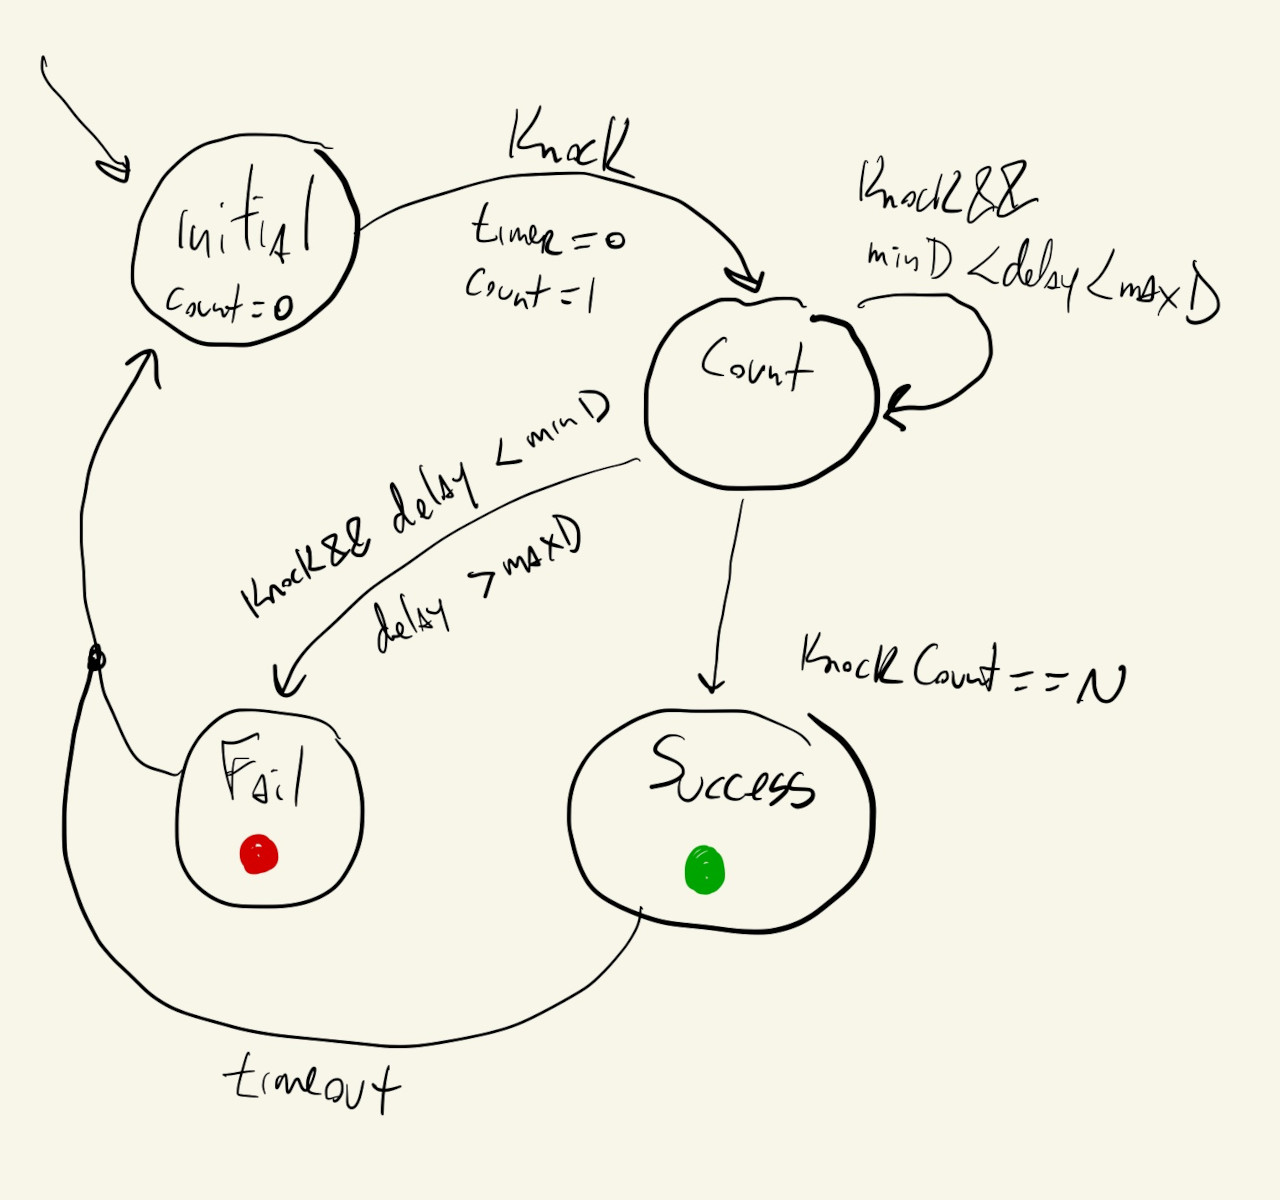 Knock
Initial
count = 0
timer = 0
count = 1
Knock &&
minD < delay < maxD
Count
Knock && delay < minD
delay > maxD
Knock Count == N
Fail
Success
timeout